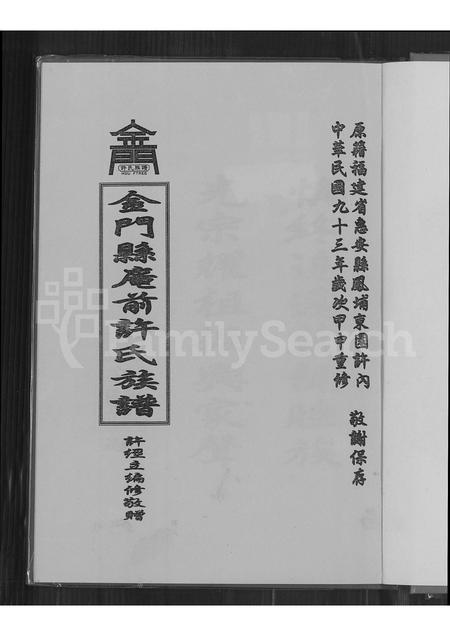 原籍福建省惠安縣鳳埔東園許內 敬謝保存
中華民國九十三年歲次甲申重修
金門
許氏族譜
金門縣庵前許氏族譜
許經立編修敬贈
FamilySearch